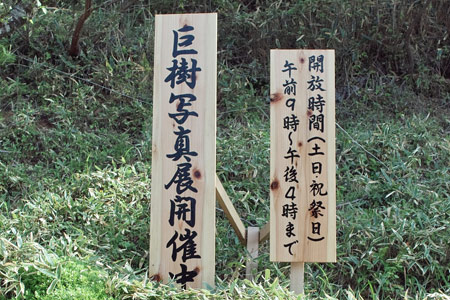 巨樹写真展開催中
開放時間(土日・祝祭日)
午前9時〜午後4時まで